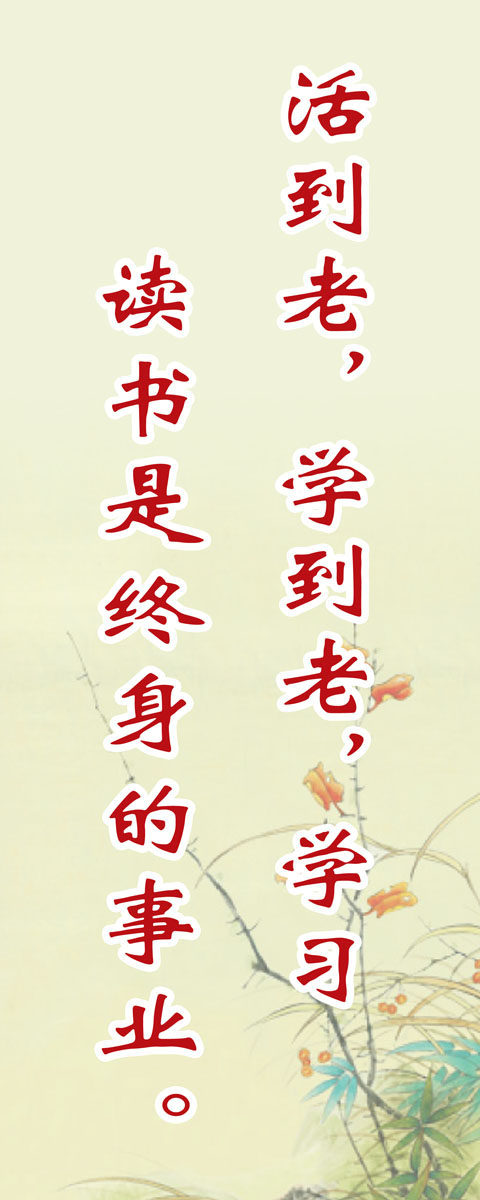 活到老，学到老，学习
读书是终身的事业。